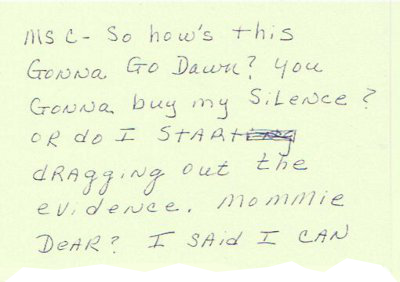 MS C- So how's this
Gonna Go Dawn? you
Gonna buy my SiLeNce?
OR do I START
dRAggiNg out the
evidence. Mommie
DeAR? I SAid I CAN